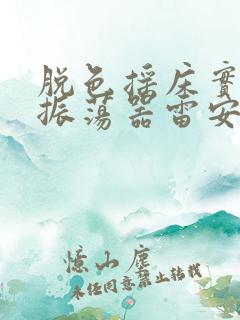 脱色摇床實
振荡器雷安
憶山塵
未经同意禁止转载